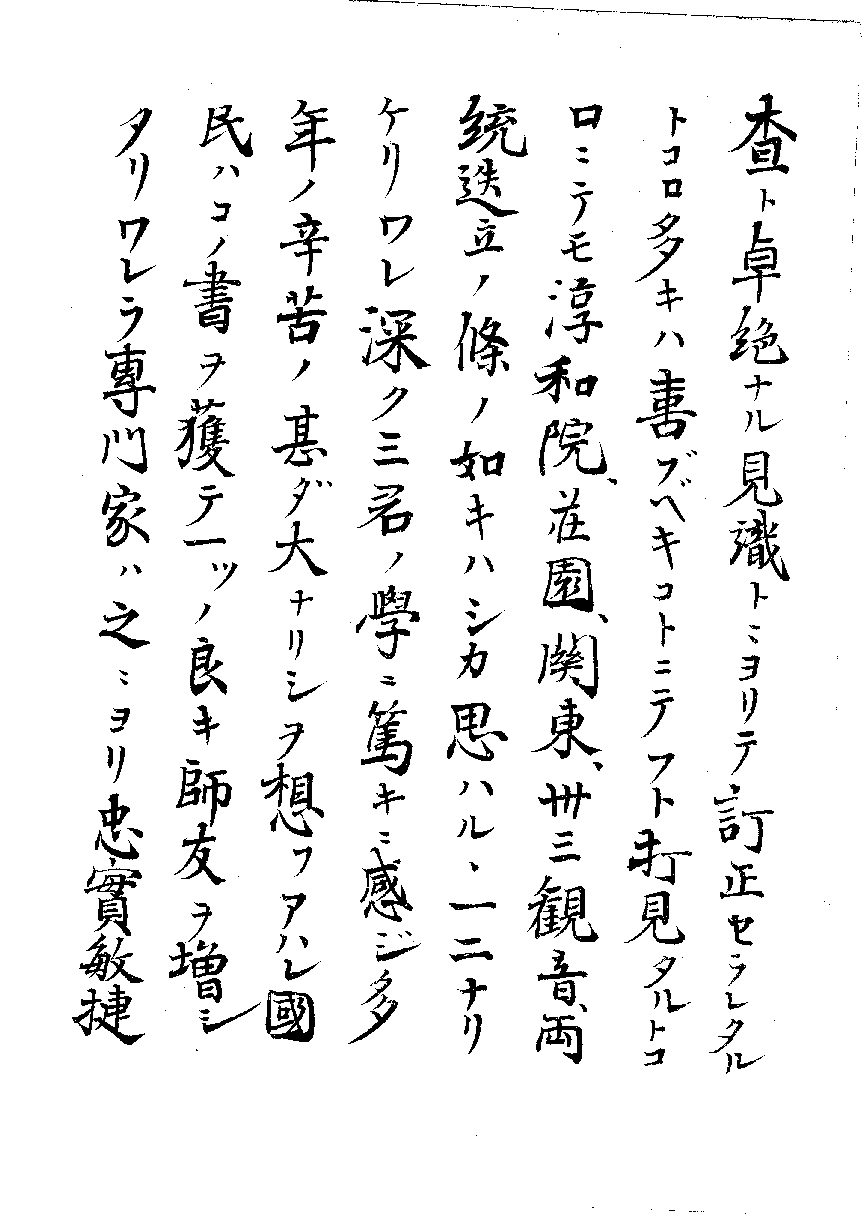 査ト卓絶ナル見識トニヨリテ訂正セラレタル
トコロ多キハ喜ブベキコトニテフト打見タルトコ
ロニテモ淳和院、荘園、関東、卅三観音、両
統迭立ノ條ノ如キハシカ思ハルヽ一二ナリ
ケリワレ深ク三君ノ學ニ篤キニ感ジ多
年ノ辛苦ノ甚ダ大ナリシヲ想フアハレ國
民ハコノ書ヲ獲テ一ツノ良キ師友ヲ増シ
タリワレラ專門家ハ之ニヨリ忠實敏捷